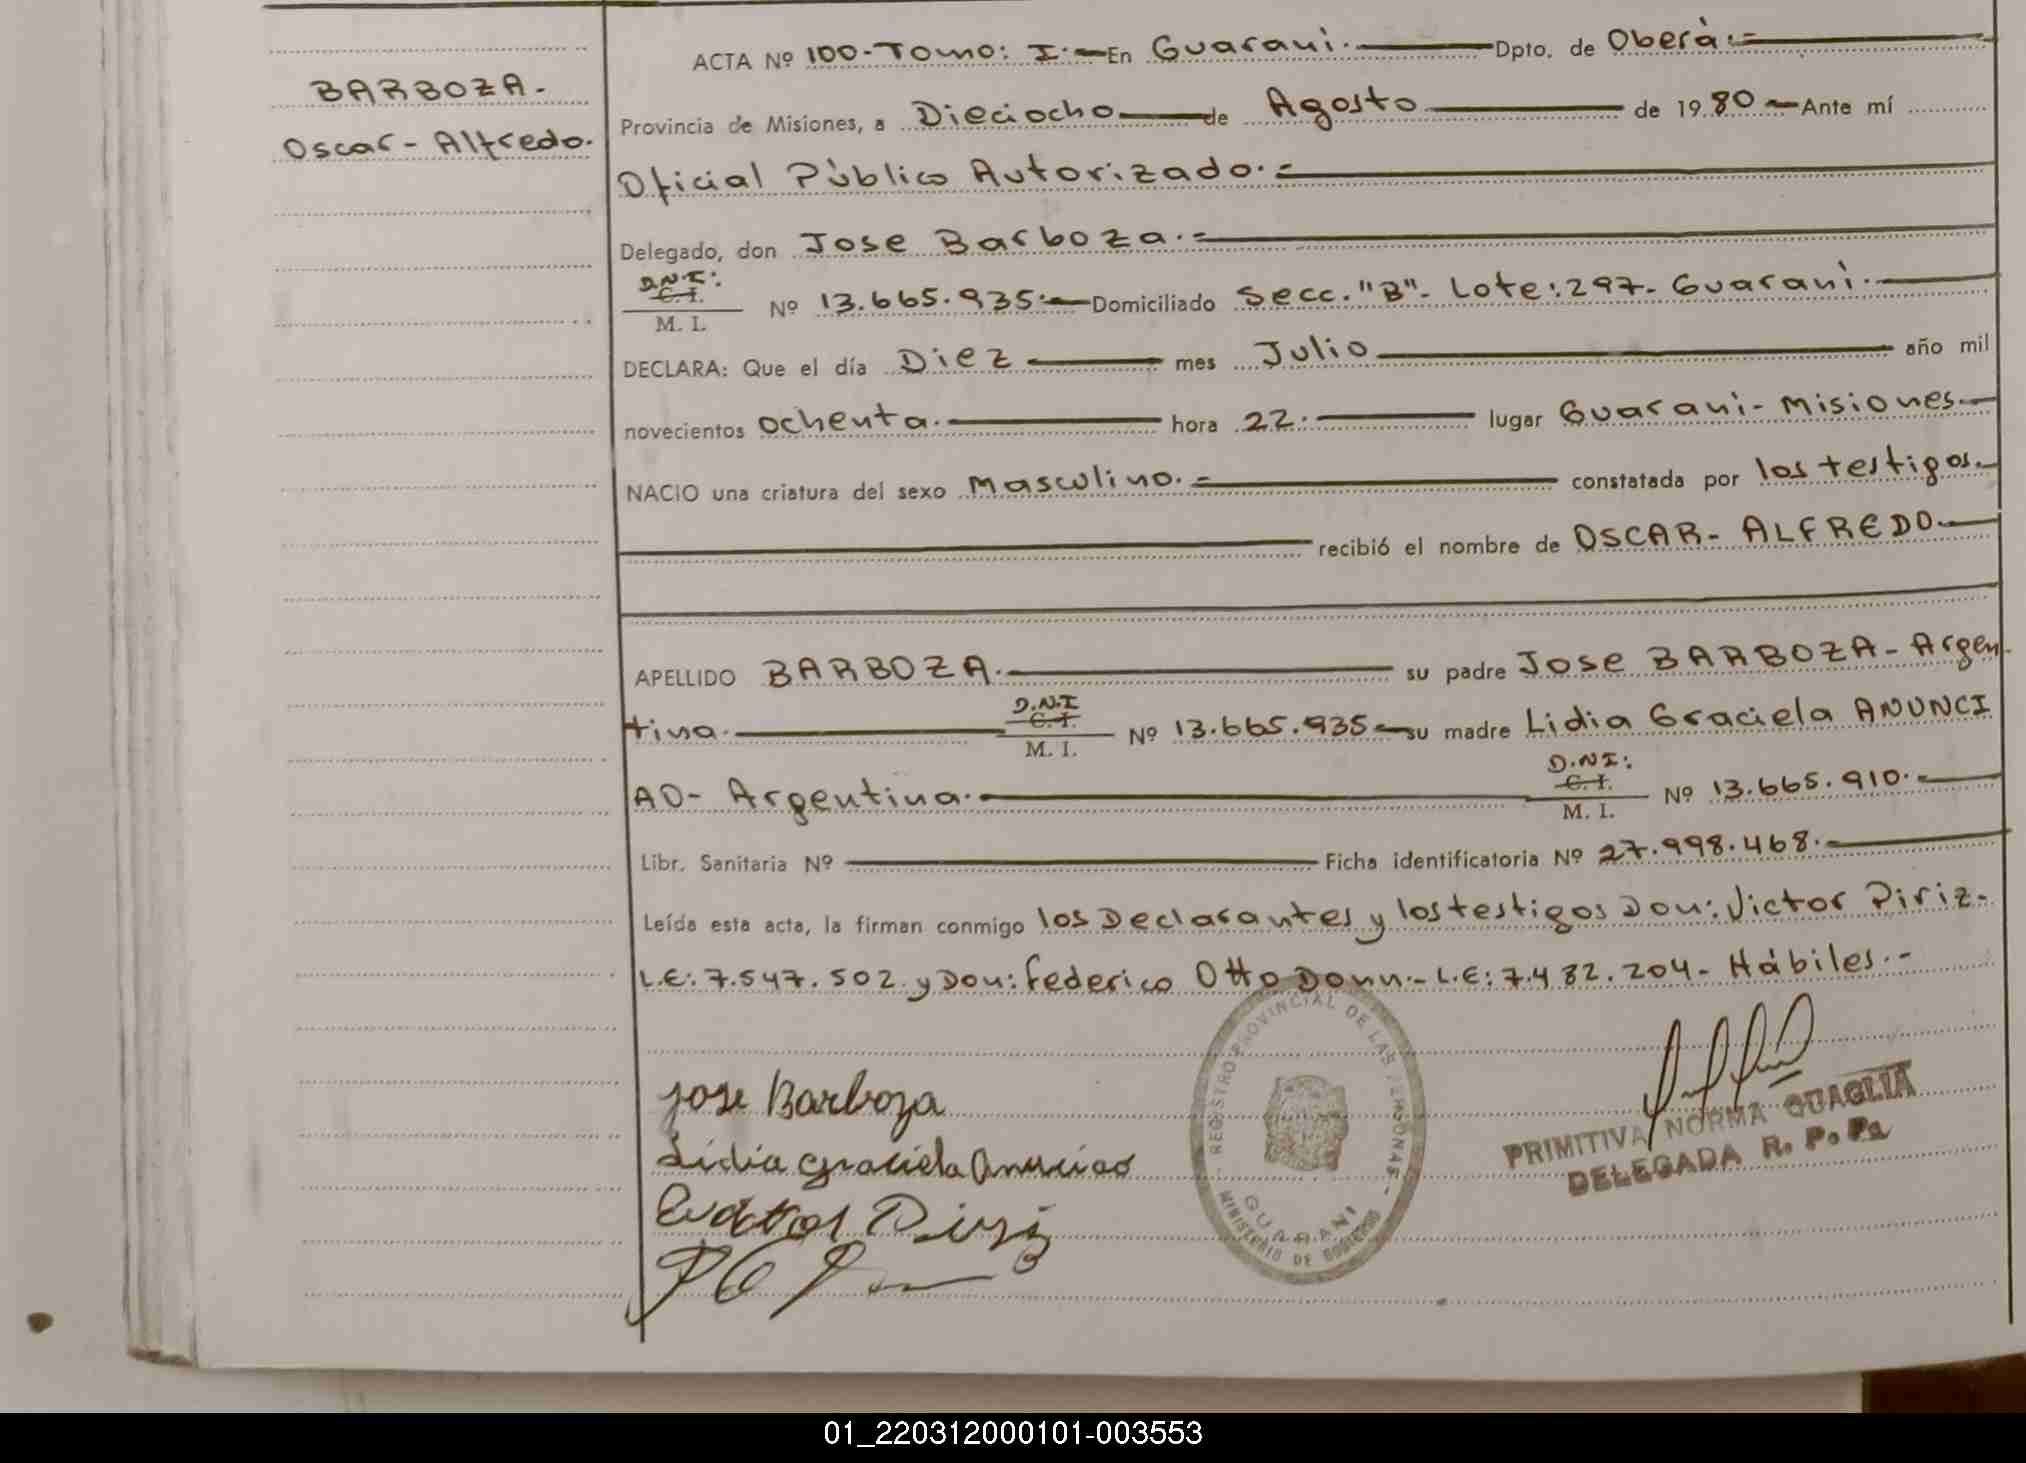 BARBOZA.
Oscar - Alfredo.
ACTA Nº 100-Tomo: I.- En Guarani. Dpto. de Oberá.-
Provincia de Misiones, a Dieciocho de Agosto de 1980 Ante mí
Oficial Público Autorizado.-
Delegado, don Jose Barboza.-
D.N.I:
C. I.
M. I.
Nº 13.665.935.- Domiciliado Secc. "B"- Lote: 297- Guarani.
DECLARA: Que el día Diez mes Julio año mil
novecientos ochenta. hora 22. lugar Guarani- Misiones.
NACIO una criatura del sexo Masculino.- constatada por los testigos.
recibió el nombre de OSCAR- ALFREDO.
APELLIDO BARBOZA. su padre Jose BARBOZA- Argen-
tina. D.N.I C. I. M. I. Nº 13.665.935- su madre Lidia Graciela ANUNCI
AO- Argentina.- D.N.I: C. I. M. I. Nº 13.665.910.
Libr. Sanitaria Nº Ficha identificatoria Nº 27.998.468.
Leída esta acta, la firman conmigo los Declarantes y los testigos Don: Victor Piriz-
L.E: 7.547.502 y Don: Federico Otto Donn.- L.E: 7.482.204- Hábiles.-
Jose Barboza
Lidia Graciela Anunciao
REGISTRO PROVINCIAL DE LAS PERSONAS
GUARANI
MINISTERIO DE GOBIERNO
PRIMITIVA NORMA GUAGLIA
DELEGADA R. P. Ps
01_220312000101-003553